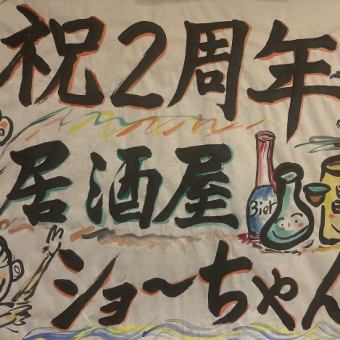 祝2周年
居酒屋
Bier
ショ〜ちゃん